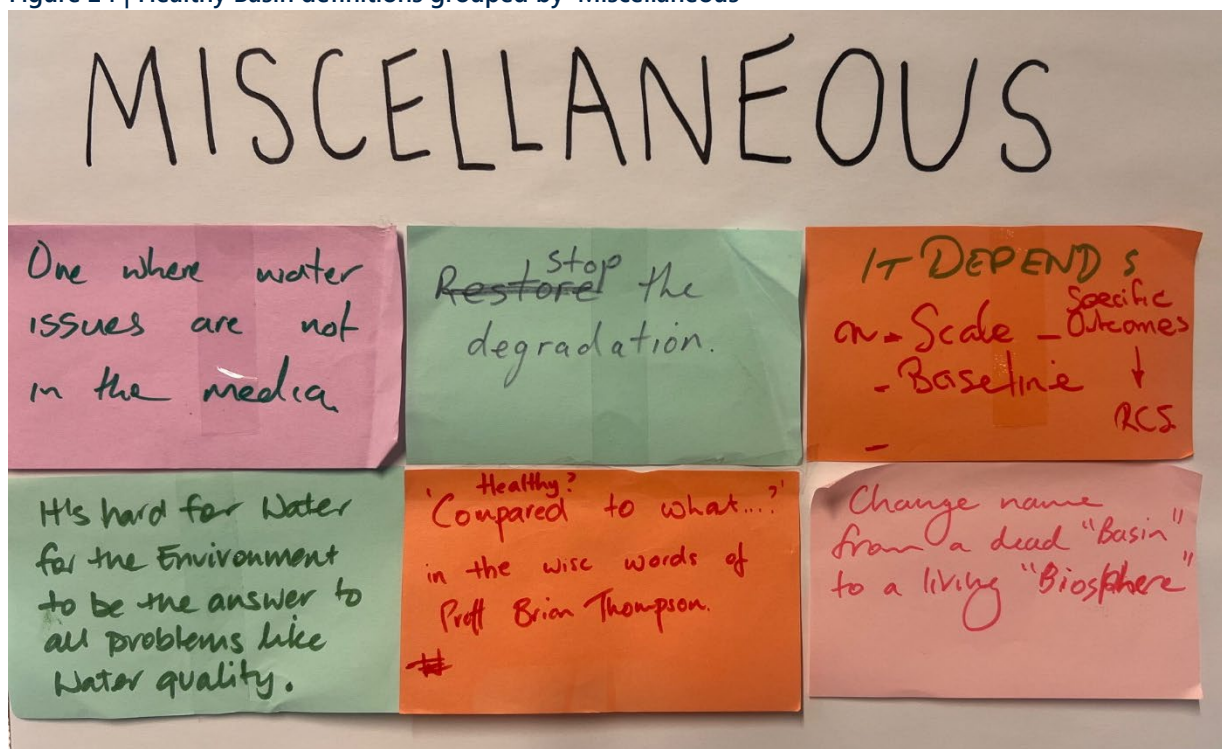 MISCELLANEOUS
One where water
issues are not
in the media.
stop
Restore the
degradation.
IT DEPENDS
on - Scale - Specific
Outcomes
- Baseline ↓
RCS
-
It's hard for Water
for the Environment
to be the answer to
all problems like
Water quality.
Healthy?
'Compared to what...?'
in the wise words of
Proff Brian Thompson.
Change name
from a dead "Basin"
to a living "Biosphere"